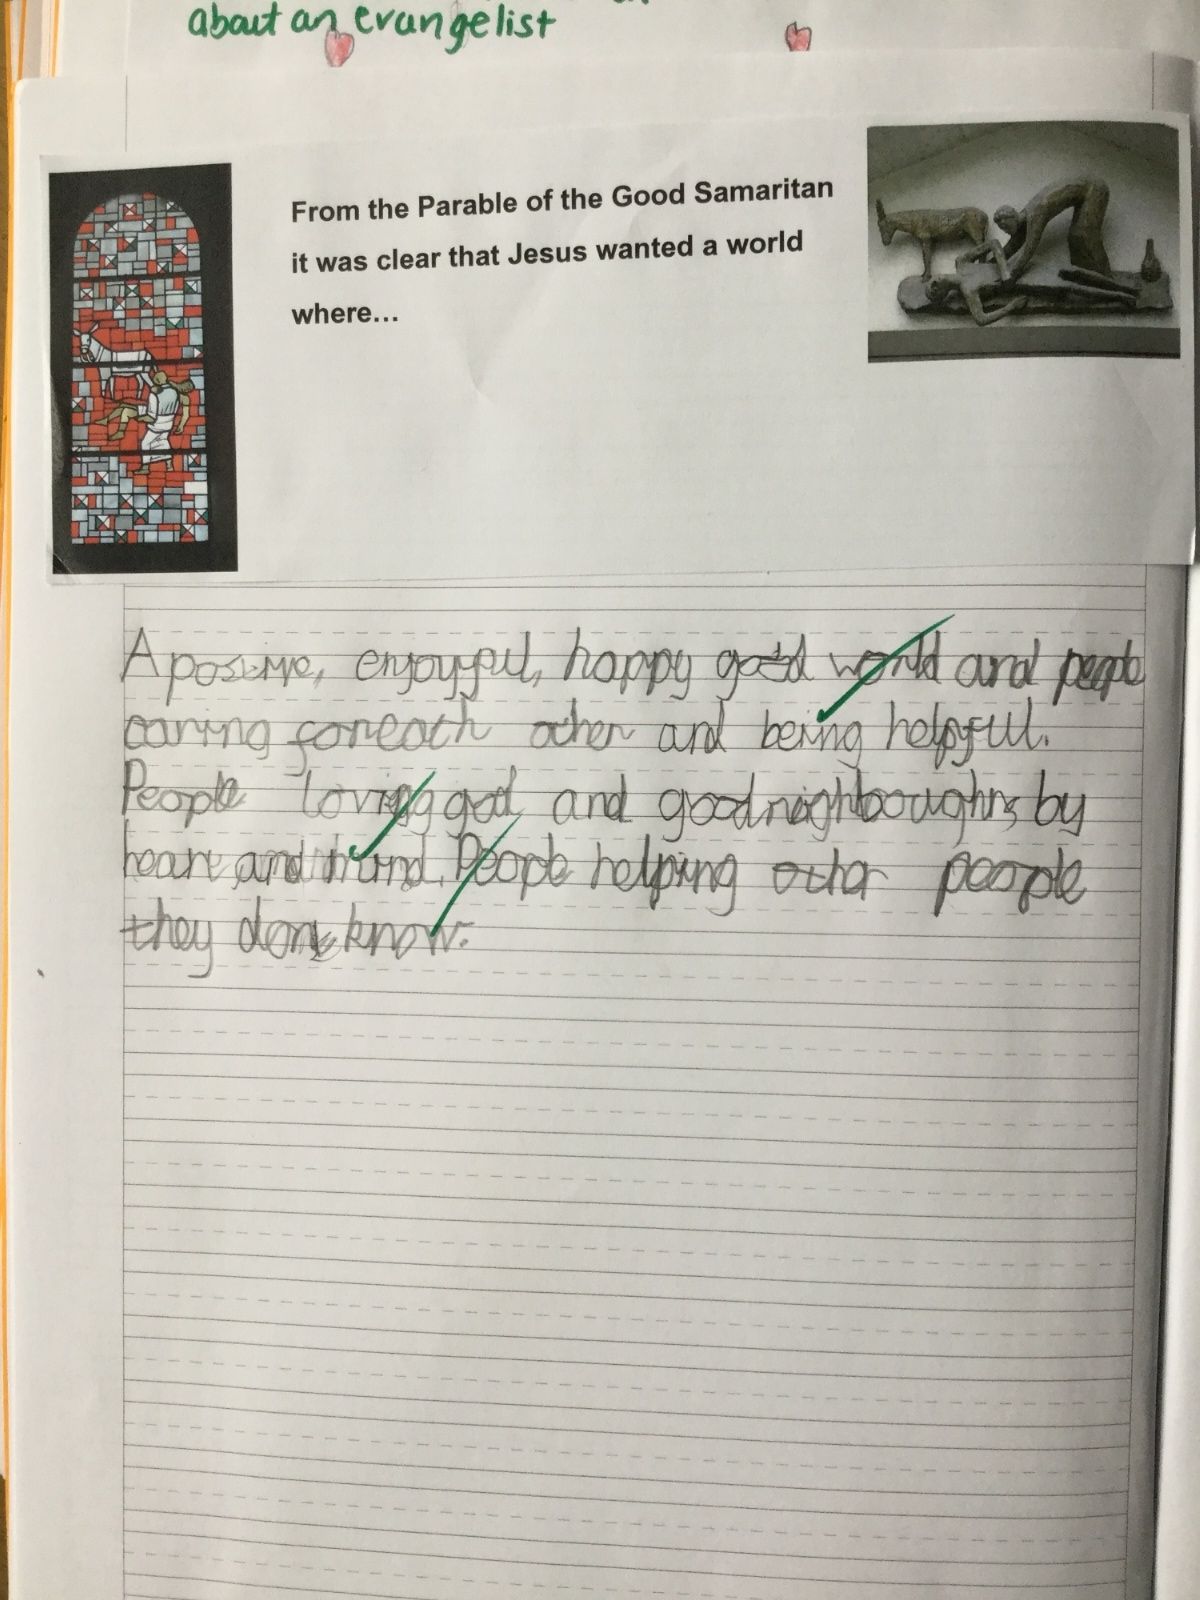 about an evangelist
From the Parable of the Good Samaritan
it was clear that Jesus wanted a world
where...
A positive, enjoyful, happy good world and people
caring foreach other and being helpful.
People loving god and good neighboughrs by
heart and mind. People helping other people
they dont know.